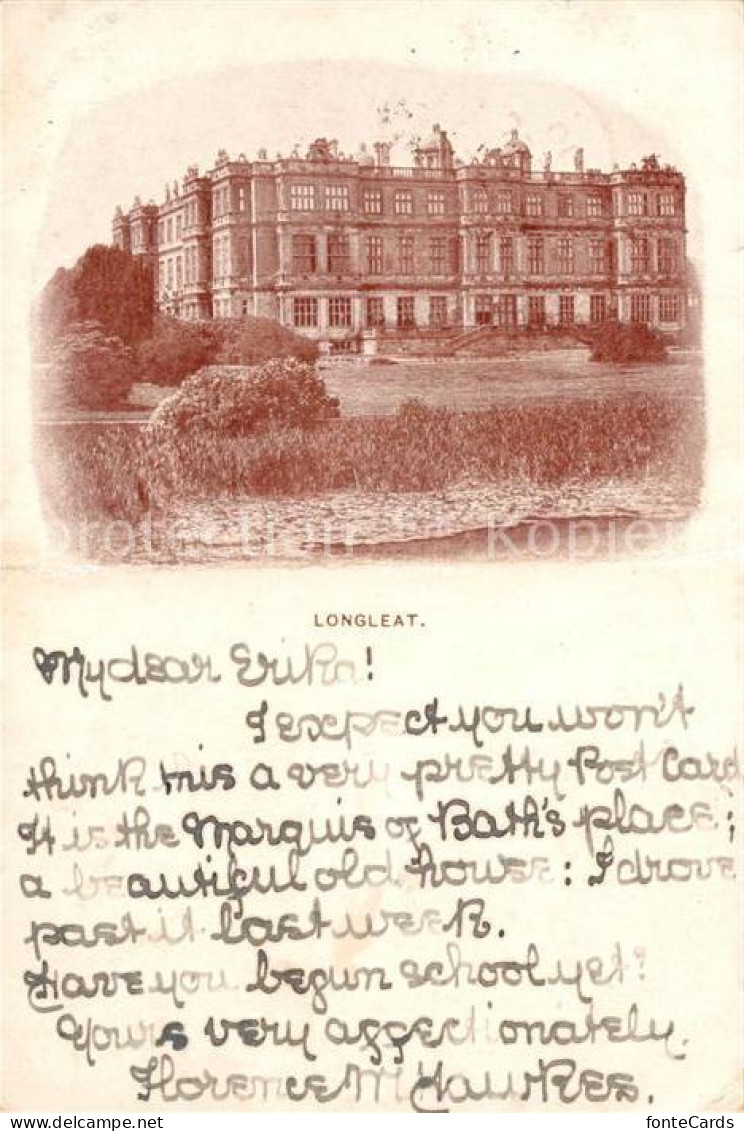 LONGLEAT.
My dear Erika!
I expect you won't
think this a very pretty Post Card
It is the Marquis of Bath's place;
a beautiful old house: I drove
past it last week.
Have you begun school yet?
Yours very affectionately,
Florence M Hawkes.
fonteCards